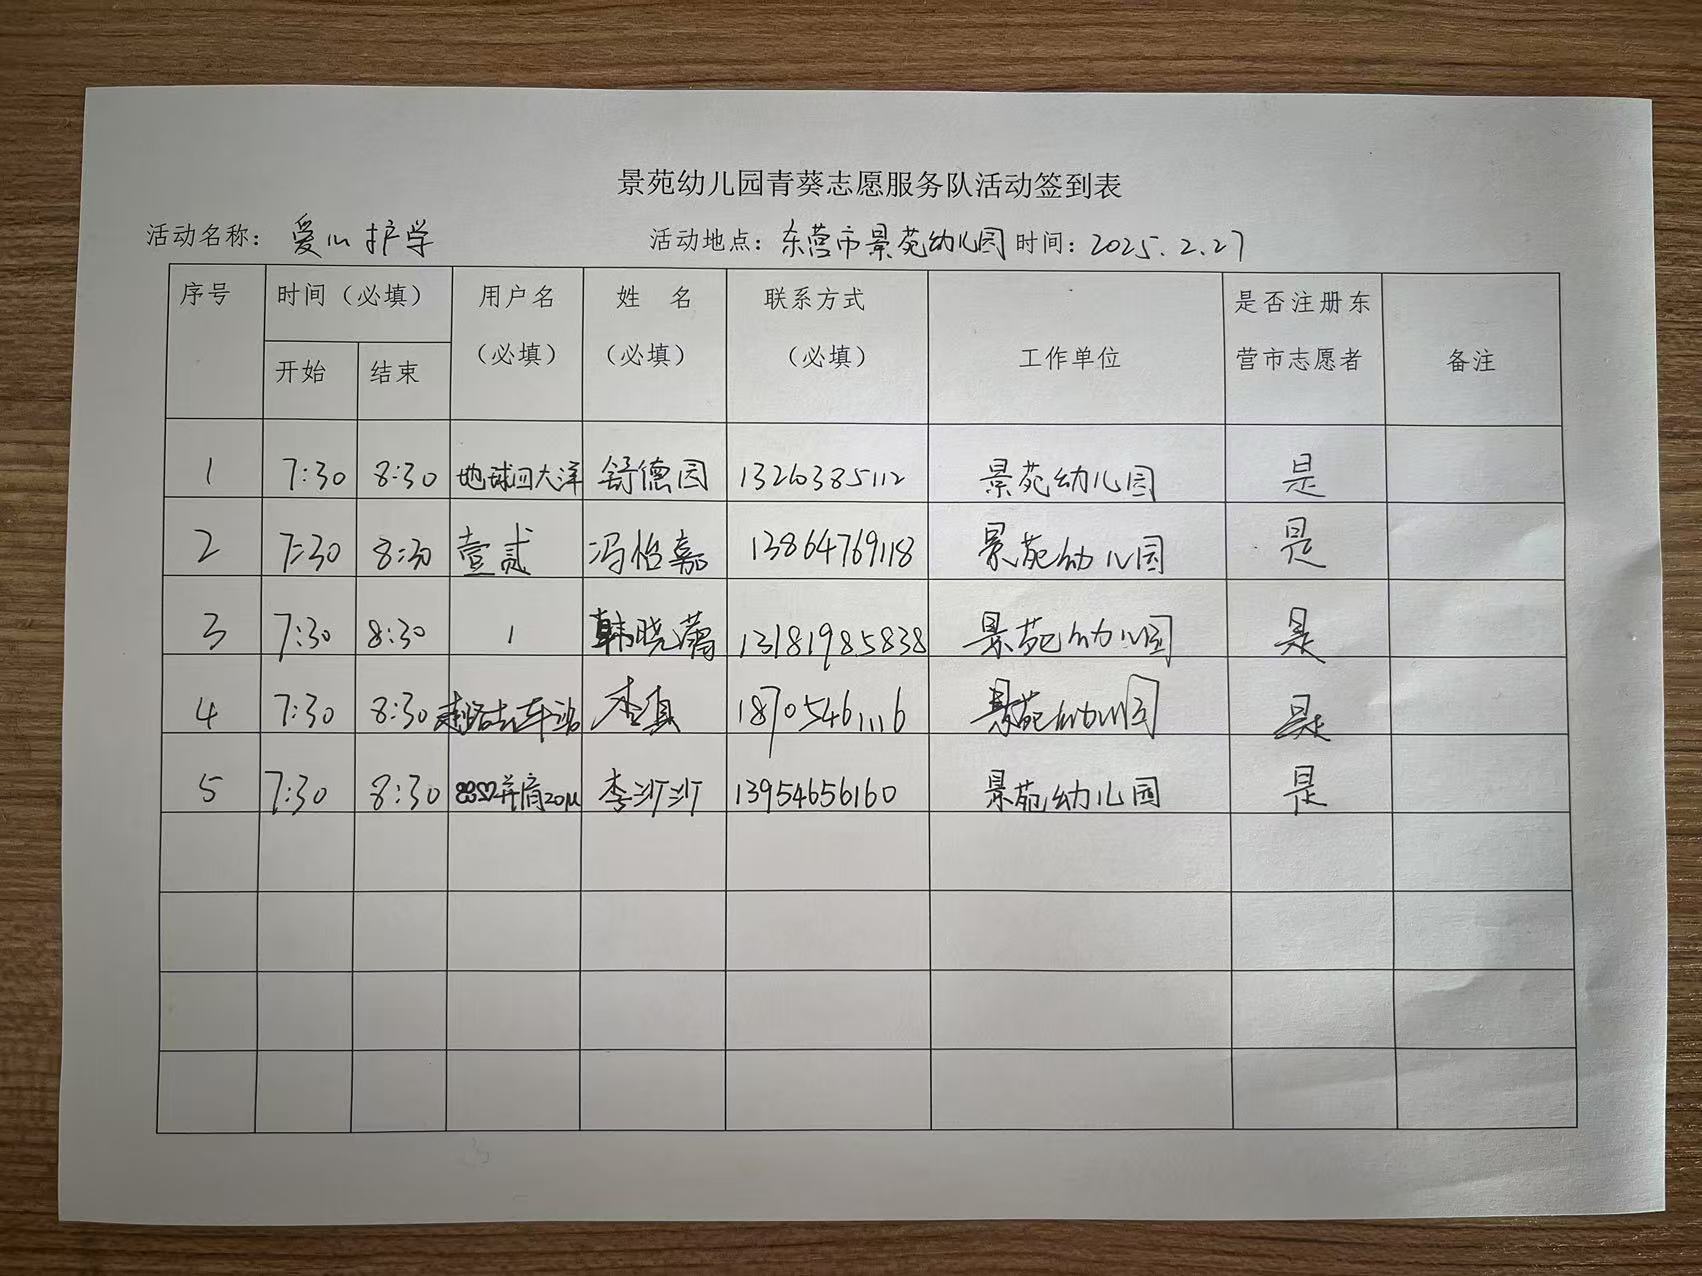 景苑幼儿园青葵志愿服务队活动签到表
活动名称： 爱心护学 活动地点：东营市景苑幼儿园 时间：2025.2.27
序号 时间（必填） 用户名（必填） 姓 名（必填） 联系方式（必填） 工作单位 是否注册东营市志愿者 备注
开始 结束
1 7:30 8:30 地球四大洋 舒德园 13263385112 景苑幼儿园 是
2 7:30 8:30 壹贰 冯怡嘉 13864769118 景苑幼儿园 是
3 7:30 8:30 1 韩晓潇 13181985838 景苑幼儿园 是
4 7:30 8:30 李真 18705461116 景苑幼儿园 是
5 7:30 8:30 李沙沙 13954656160 景苑幼儿园 是